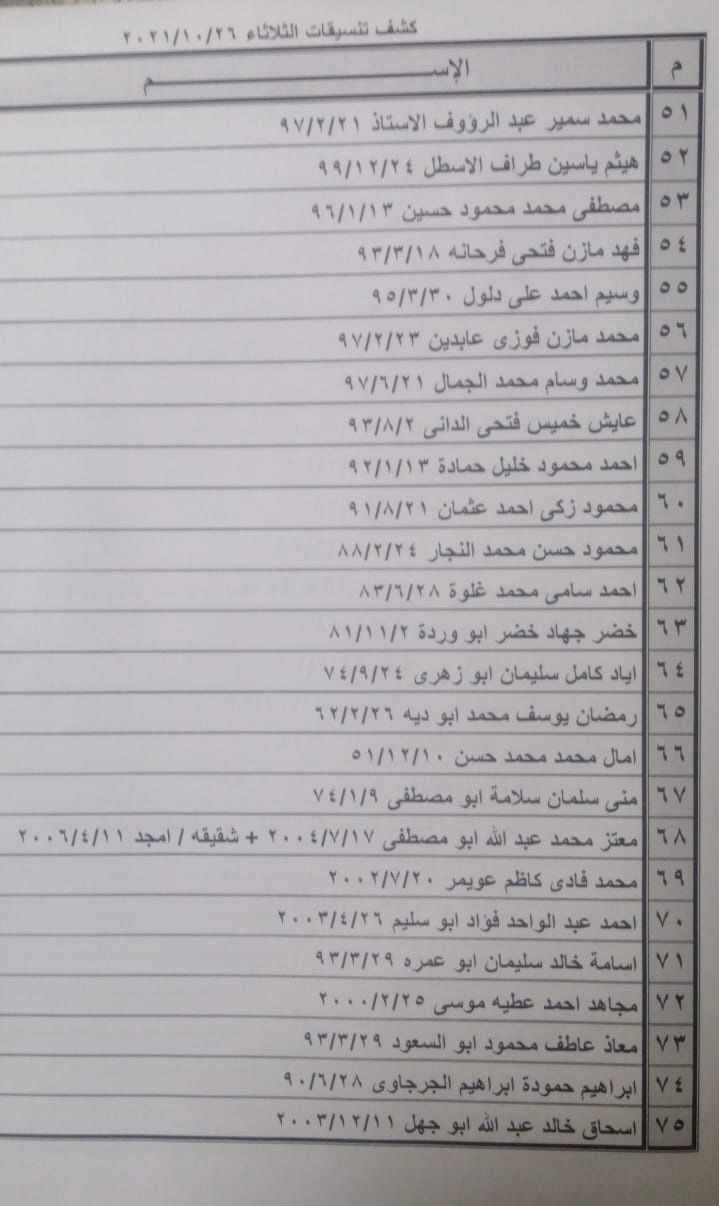 كشف تنسيقات الثلاثاء ٢٠٢١/١٠/٢٦
م الإســـــــــــــم
٥١ محمد سمير عبد الرؤوف الاستاذ ٩٧/٢/٢١
٥٢ هيثم ياسين طراف الاسطل ٩٩/١٢/٢٤
٥٣ مصطفى محمد محمود حسين ٩٦/١/١٣
٥٤ فهد مازن فتحى فرحانه ٩٣/٣/١٨
٥٥ وسيم احمد على دلول ٩٥/٣/٣٠
٥٦ محمد مازن فوزى عابدين ٩٧/٢/٢٣
٥٧ محمد وسام محمد الجمال ٩٧/٦/٢١
٥٨ عايش خميس فتحى الدانى ٩٣/٨/٢
٥٩ احمد محمود خليل حمادة ٩٢/١/١٣
٦٠ محمود زكى احمد عثمان ٩١/٨/٢١
٦١ محمود حسن محمد النجار ٨٨/٢/٢٤
٦٢ احمد سامى محمد غلوة ٨٣/٦/٢٨
٦٣ خضر جهاد خضر ابو وردة ٨١/١١/٢
٦٤ اياد كامل سليمان ابو زهرى ٧٤/٩/٢٤
٦٥ رمضان يوسف محمد ابو ديه ٦٢/٢/٢٦
٦٦ امال محمد محمد حسن ٥١/١٢/١٠
٦٧ منى سلمان سلامة ابو مصطفى ٧٤/١/٩
٦٨ معتز محمد عبد الله ابو مصطفى ٢٠٠٤/٧/١٧ + شقيقه / امجد ٢٠٠٦/٤/١١
٦٩ محمد فادى كاظم عويمر ٢٠٠٢/٧/٢٠
٧٠ احمد عبد الواحد فؤاد ابو سليم ٢٠٠٣/٤/٢٦
٧١ اسامة خالد سليمان ابو عمره ٩٣/٣/٢٩
٧٢ مجاهد احمد عطيه موسى ٢٠٠٠/٢/٢٥
٧٣ معاذ عاطف محمود ابو السعود ٩٣/٣/٢٩
٧٤ ابراهيم حمودة ابراهيم الجرجاوى ٩٠/٦/٢٨
٧٥ اسحاق خالد عبد الله ابو جهل ٢٠٠٣/١٢/١١